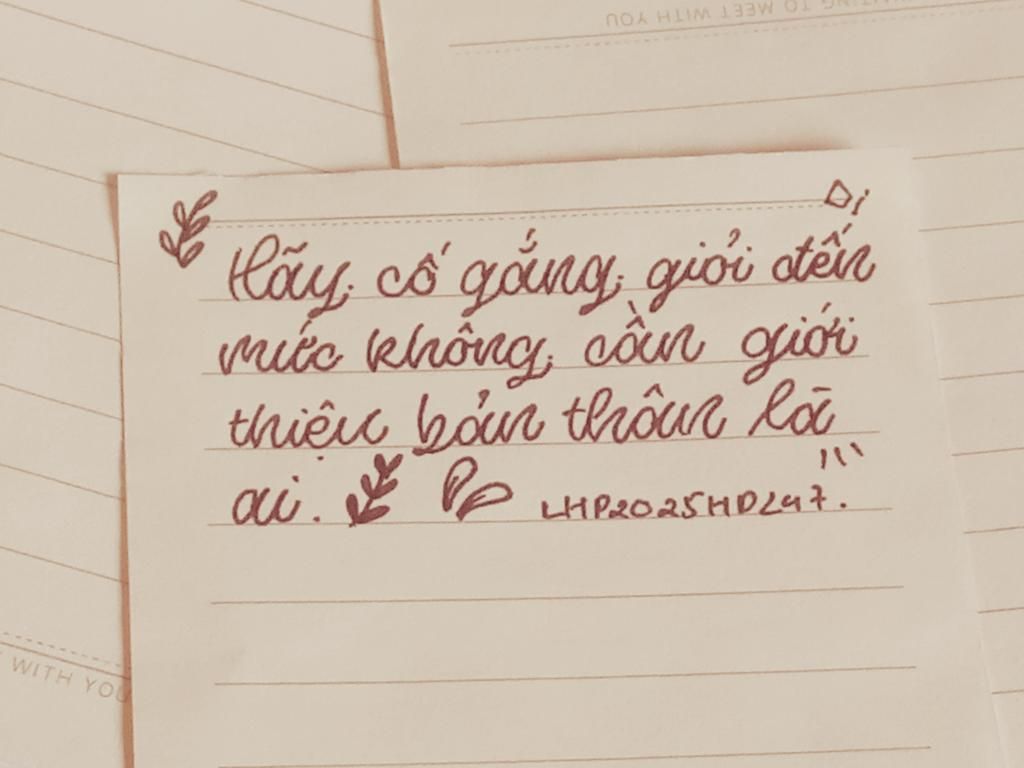 WAITING TO MEET WITH YOU
Hãy cố gắng giỏi đến
mức không cần giới
thiệu bản thân là
ai. LHP2025HDL47.
WITH YOU